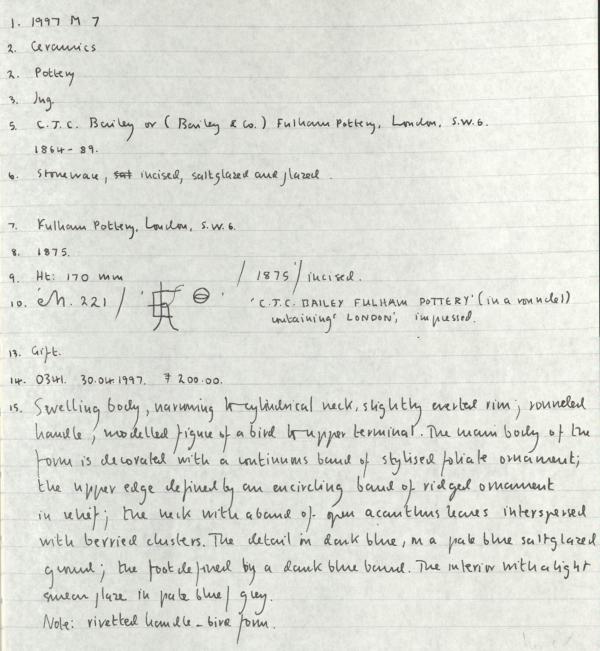 1. 1997 M 7
2. Ceramics
2. Pottery
3. Jug.
5. C.J.C. Bailey or (Bailey & Co.) Fulham Pottery, London, S.W.6.
1864-89.
6. Stoneware, salt incised, saltglazed and glazed.
7. Fulham Pottery, London, S.W.6.
8. 1875.
9. Ht: 170 mm / 1875 / incised.
10. 'M. 221 / 'C.J.C. BAILEY FULHAM POTTERY' (in a roundel)
containing 'LONDON', impressed.
13. Gift.
14. 0341. 30.04.1997. 200.00.
15. Swelling body, narrowing to cylindrical neck, slightly everted rim; rounded
handle; modelled figure of a bird to upper terminal. The main body of the
form is decorated with a continuous band of stylised foliate ornament;
the upper edge defined by an encircling band of ridged ornament
in relief; the neck with a band of open acanthus leaves interspersed
with berried clusters. The detail in dark blue, on a pale blue saltglazed
ground; the foot defined by a dark blue band. The interior with a light
smear glaze in pale blue/grey.
Note: rivetted handle - bird form.